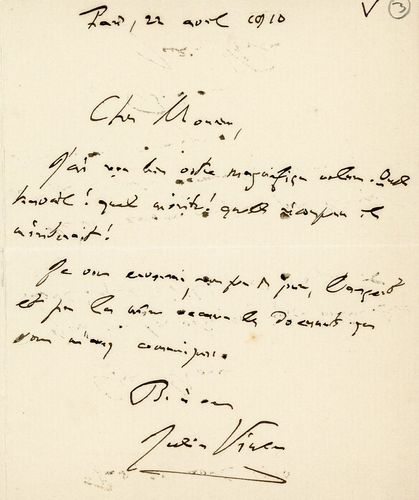 3
Paris, 22 avril 1910
Cher Monsieur,
J'ai reçu hier votre magnifique volume. Quel
travail! quel mérite! quelle récompense il
mériterait!
Je vous enverrai, sous peu de jours, l'
et par la même occasion les documents que
vous m'avez communiqués.
B. à vous